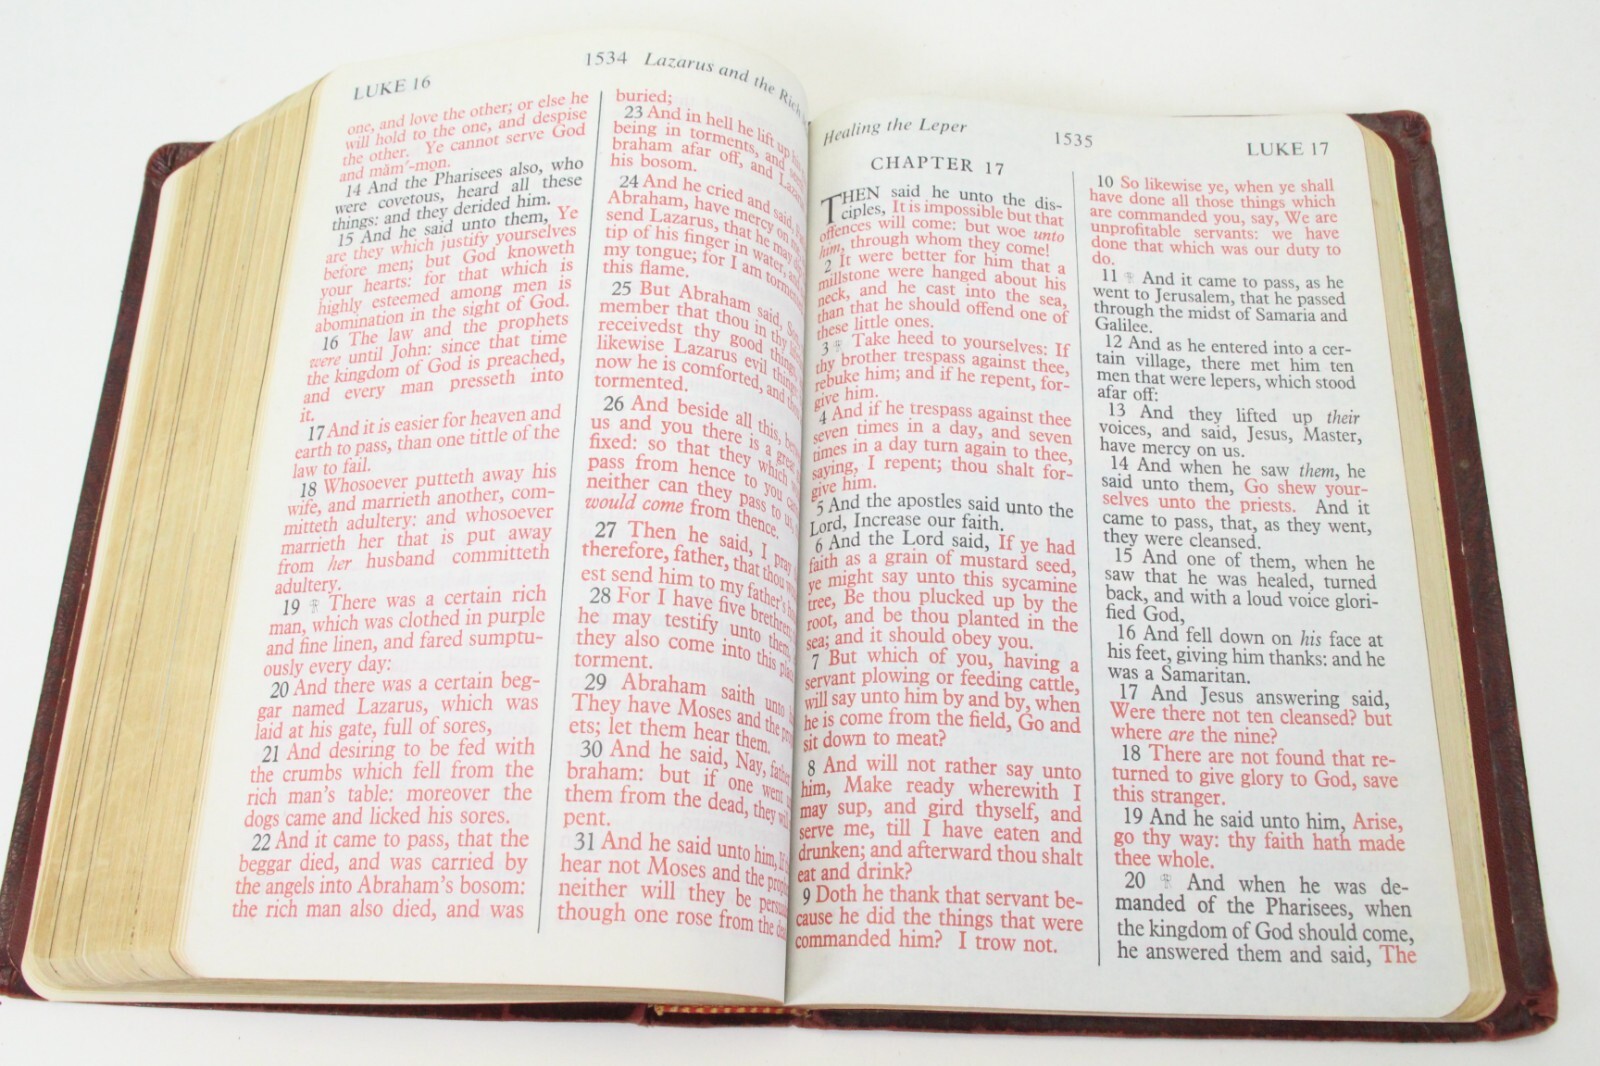 LUKE 16
1534 Lazarus and the Rich
one, and love the other; or else he
will hold to the one, and despise
the other. Ye cannot serve God
and măm′-mon.
14 And the Pharisees also, who
were covetous, heard all these
things: and they derided him.
15 And he said unto them, Ye
are they which justify yourselves
before men; but God knoweth
your hearts: for that which is
highly esteemed among men is
abomination in the sight of God.
16 The law and the prophets
were until John: since that time
the kingdom of God is preached,
and every man presseth into
it.
17 And it is easier for heaven and
earth to pass, than one tittle of the
law to fail.
18 Whosoever putteth away his
wife, and marrieth another, com-
mitteth adultery: and whosoever
marrieth her that is put away
from her husband committeth
adultery.
19 There was a certain rich
man, which was clothed in purple
and fine linen, and fared sumptu-
ously every day:
20 And there was a certain beg-
gar named Lazarus, which was
laid at his gate, full of sores,
21 And desiring to be fed with
the crumbs which fell from the
rich man's table: moreover the
dogs came and licked his sores.
22 And it came to pass, that the
beggar died, and was carried by
the angels into Abraham's bosom:
the rich man also died, and was
buried;
23 And in hell he lift up
being in torments, and
braham afar off, and
his bosom.
24 And he cried and said,
Abraham, have mercy on
send Lazarus, that he may
tip of his finger in water,
my tongue; for I am
this flame.
25 But Abraham said,
member that thou in thy
receivedst thy good
likewise Lazarus evil
now he is comforted, and
tormented.
26 And beside all this,
us and you there is a
fixed: so that they which
pass from hence to you
neither can they pass to
would come from thence.
27 Then he said, I pray
therefore, father, that thou
est send him to my father's
28 For I have five brethren;
he may testify unto them,
they also come into this
torment.
29 Abraham saith unto
They have Moses and the
ets; let them hear them.
30 And he said, Nay,
braham: but if one went
them from the dead, they
pent.
31 And he said unto him,
hear not Moses and the
neither will they be
though one rose from the
Healing the Leper
1535
LUKE 17
CHAPTER 17
THEN said he unto the dis-
ciples, It is impossible but that
offences will come: but woe unto
him, through whom they come!
2 It were better for him that a
millstone were hanged about his
neck, and he cast into the sea,
than that he should offend one of
these little ones.
3 Take heed to yourselves: If
thy brother trespass against thee,
rebuke him; and if he repent, for-
give him.
4 And if he trespass against thee
seven times in a day, and seven
times in a day turn again to thee,
saying, I repent; thou shalt for-
give him.
5 And the apostles said unto the
Lord, Increase our faith.
6 And the Lord said, If ye had
faith as a grain of mustard seed,
ye might say unto this sycamine
tree, Be thou plucked up by the
root, and be thou planted in the
sea; and it should obey you.
7 But which of you, having a
servant plowing or feeding cattle,
will say unto him by and by, when
he is come from the field, Go and
sit down to meat?
8 And will not rather say unto
him, Make ready wherewith I
may sup, and gird thyself, and
serve me, till I have eaten and
drunken; and afterward thou shalt
eat and drink?
9 Doth he thank that servant be-
cause he did the things that were
commanded him? I trow not.
10 So likewise ye, when ye shall
have done all those things which
are commanded you, say, We are
unprofitable servants: we have
done that which was our duty to
do.
11 And it came to pass, as he
went to Jerusalem, that he passed
through the midst of Samaria and
Galilee.
12 And as he entered into a cer-
tain village, there met him ten
men that were lepers, which stood
afar off:
13 And they lifted up their
voices, and said, Jesus, Master,
have mercy on us.
14 And when he saw them, he
said unto them, Go shew your-
selves unto the priests. And it
came to pass, that, as they went,
they were cleansed.
15 And one of them, when he
saw that he was healed, turned
back, and with a loud voice glori-
fied God,
16 And fell down on his face at
his feet, giving him thanks: and he
was a Samaritan.
17 And Jesus answering said,
Were there not ten cleansed? but
where are the nine?
18 There are not found that re-
turned to give glory to God, save
this stranger.
19 And he said unto him, Arise,
go thy way: thy faith hath made
thee whole.
20 And when he was de-
manded of the Pharisees, when
the kingdom of God should come,
he answered them and said, The